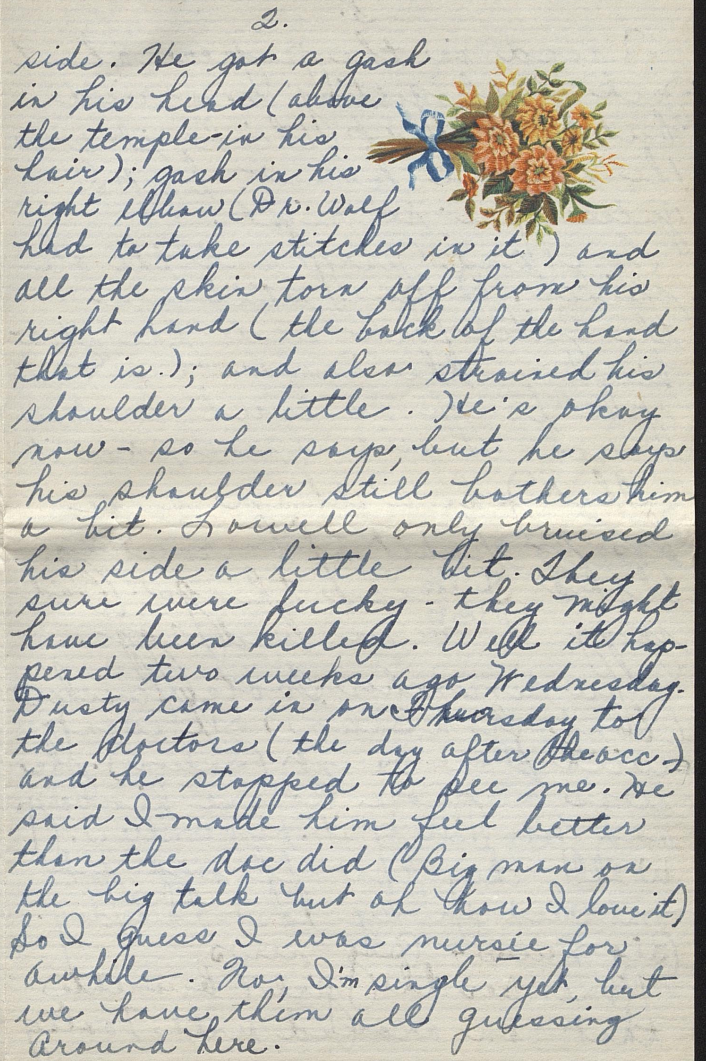 2.
side. He got a gash
in his head (above
the temple-in his
hair); gash in his
right elbow (Dr. Wolf
had to take stitches in it) and
all the skin torn off from his
right hand (the back of the hand
that is.); and also strained his
shoulder a little. He's okay
now - so he says, but he says
his shoulder still bothers him
a bit. Lowell only bruised
his side a little bit. They
sure were lucky - they might
have been killed. Well it hap-
pened two weeks ago Wednesday.
Dusty came in on Thursday to
the doctors (the day after the acc.)
and he stopped to see me. He
said I made him feel better
than the doc did (Big man on
the big talk but oh how I love it)
So I guess I was nursie for
awhile. No, I'm single yet, but
we have them all guessing
around here.